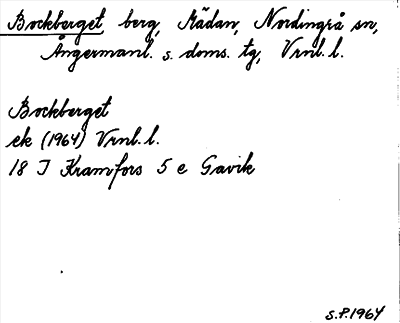 Bockberget, berg, Rädan, Nordingrå sn,
Ångermanl. s. doms. tg, Vrnl. l.
Bockberget
ek (1964) Vrnl. l.
18 I Kramfors 5 e Gavik
S.P. 1964